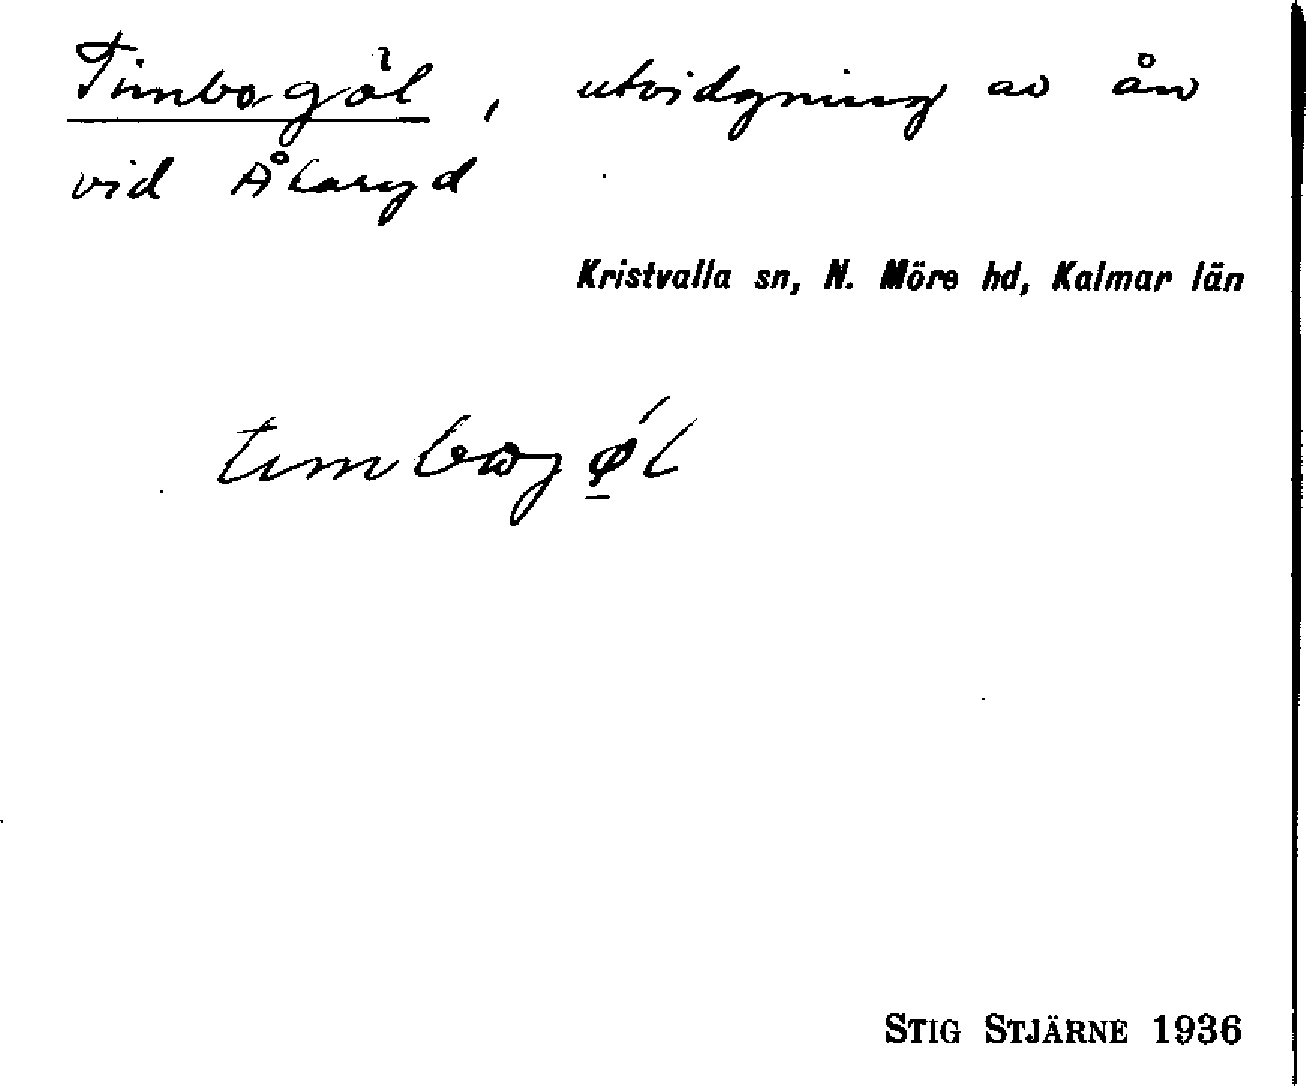 Timbogöl, utvidgning av ån
vid Åkaryd
Kristvalla sn, N. Möre hd, Kalmar län
STIG STJÄRNE 1936